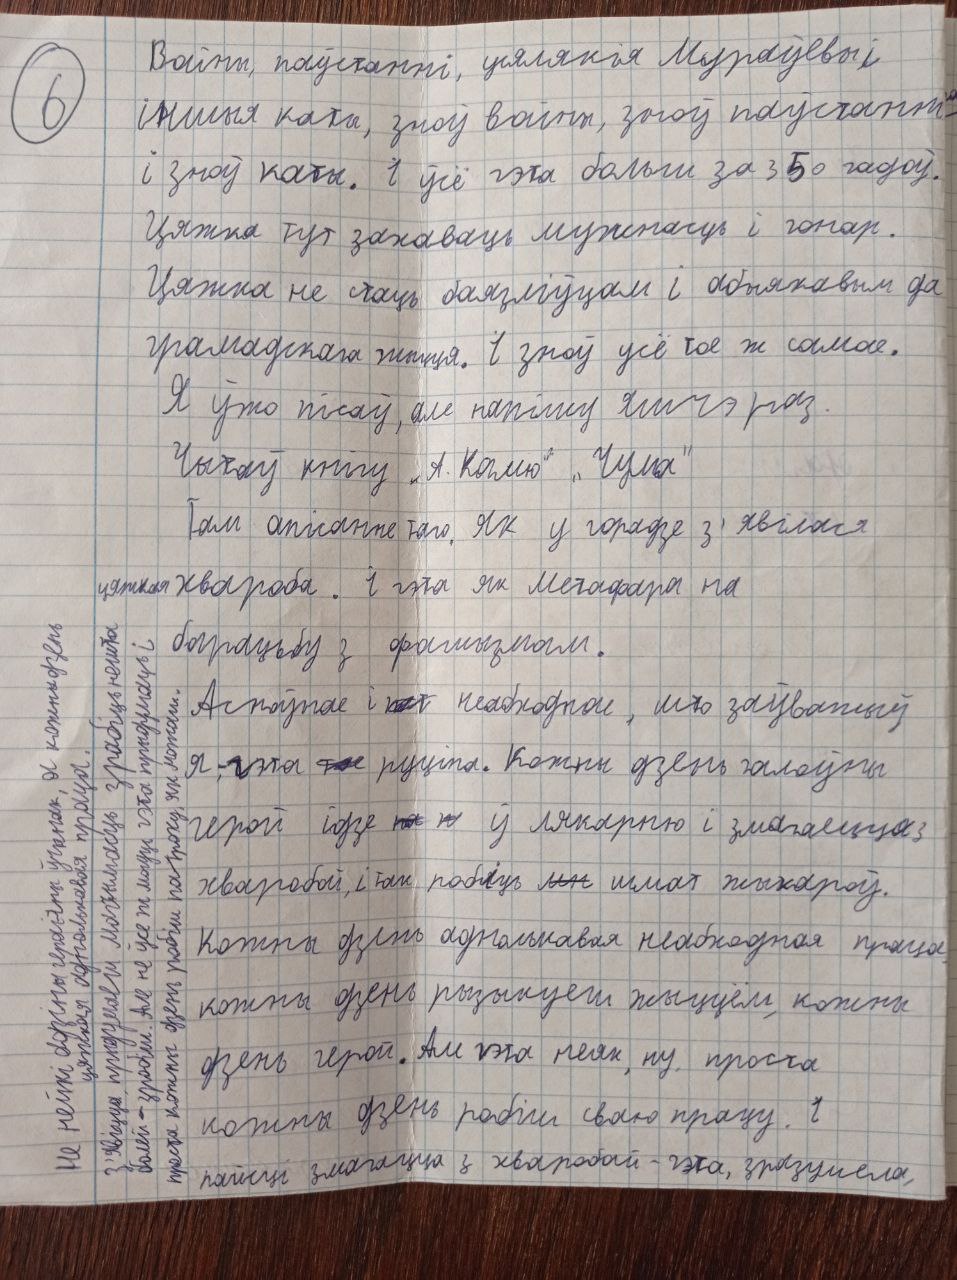 6
Войны, паўстанні, цялякія Мураўевы і
іншыя каты, зноў войны, зноў паўстанні
і зноў каты. І ўсё гэта больш за 350 гадоў.
Цяжка тут захаваць мужнасць і гонар.
Цяжка не стаць баязліўцам і абыякавым да
грамадскага жыцця. І зноў усё тое ж самае.
Я ўжо пісаў, але напішу яшчэ раз.
Чытаў кнігу „А. Камю" „Чума"
Там апісанне таго, як у горадзе з'явілася
цяжкая хвароба. І гэта як метафара на
барацьбу з фашызмам.
Асноўнае і неабходнае, што заўважыў
я, - гэта руціна. Кожны дзень галоўны
герой ідзе ў лякарню і змагаецца з
хваробай, і так робяць шмат жыхароў.
Кожны дзень аднолькавая неабходная праца,
кожны дзень рызыкуеш жыццём, кожны
дзень герой. Але гэта неяк, ну, проста
кожны дзень робіш сваю працу. І
пайсці змагацца з хваробай - гэта, зразумела,
не нейкі адзіны гераічны ўчынак, а кожны дзень
цяжкая аднолькавая праца.
З'явіцца магчымасць зрабіць нешта
болей - зробім. Але не ўсе ж могуць гэта прыдумаць і
проста кожны дзень робіш па-троху, як можаш.